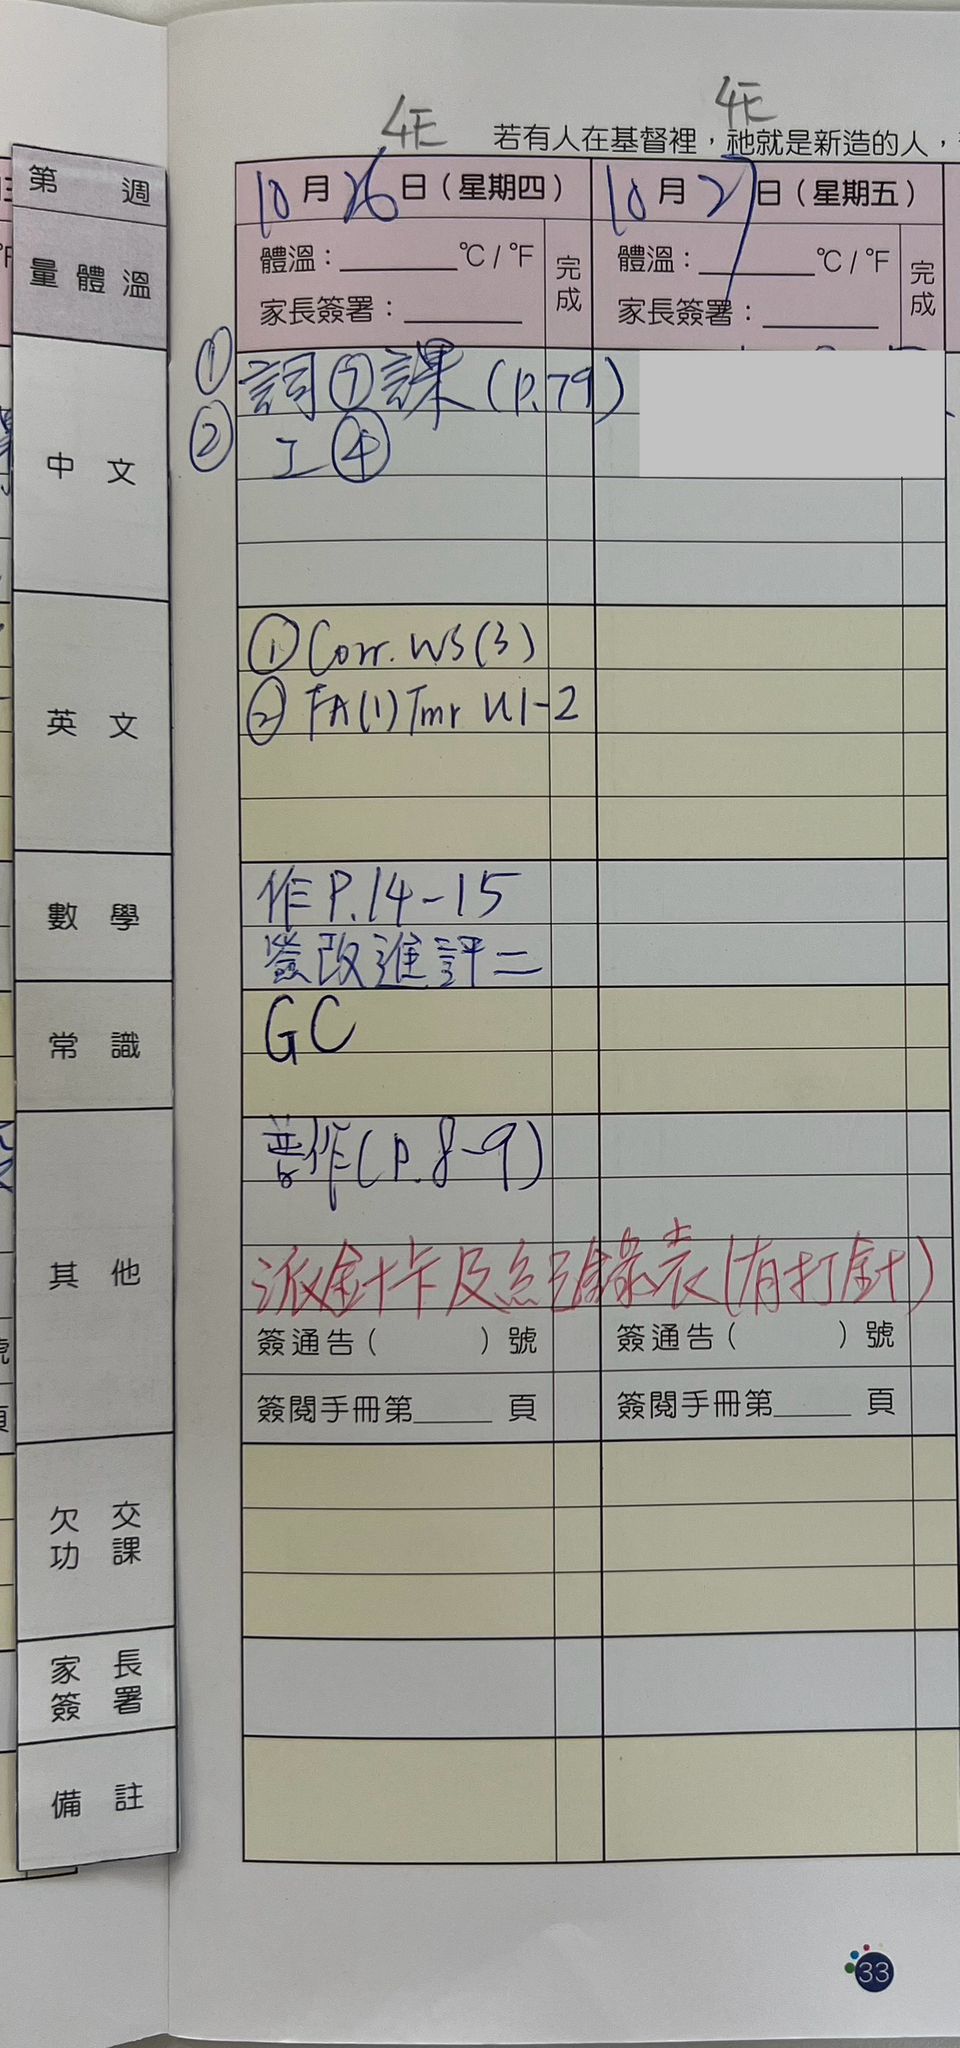 4E
4E
若有人在基督裡，祂就是新造的人，
第 週
10月26日（星期四）
10月27日（星期五）
量體溫
體溫：______°C / °F
完成
體溫：______°C / °F
完成
家長簽署：______
家長簽署：______
中文
① 詞⑦課(P.79)
② 工④
英文
① Corr. WS(3)
② FA(1) Tmr U1-2
數學
作P.14-15
簽改進評二
常識
GC
其他
普作(P.8-9)
派針卡及紀錄表(有打針)
簽通告（ ）號
簽通告（ ）號
簽閱手冊第______頁
簽閱手冊第______頁
欠交
功課
家長
簽署
備註
33